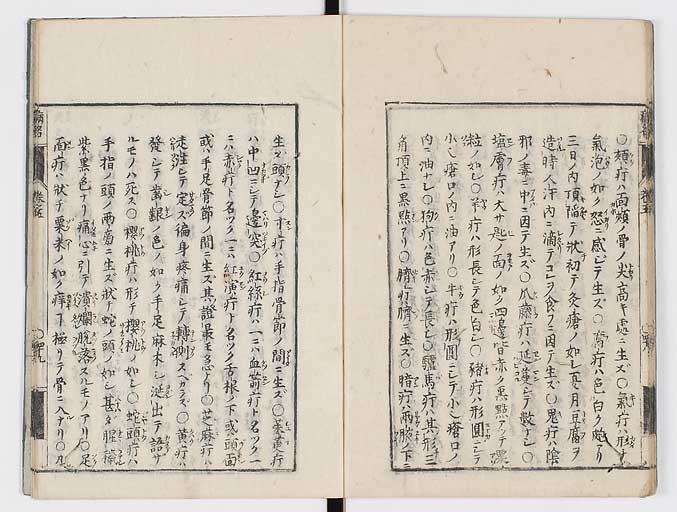 ○頬疔ハ面頬ノ骨ノ尖高キ處ニ生ズ○氣疔ハ形チ
氣泡ノ如ク怒ニ感シテ生ズ○疔ハ色白ク
三日内頂陷テ状初テ灸瘡ノ如シ夏月豆腐ヲ
造時人汗内ニ滴テコレヲ食フニ因テ生ズ○鬼疔ハ陰
邪ノ毒ニ中ニ因テ生ズ○瓜藤疔ハ延蔓シテ數ナシ○
塩膚疔ハ大サ匙ノ面ノ如ク四邊皆赤ク黒點アツテ
粒ノ如シ○羊疔ハ形長シテ色白シ○猪疔ハ形圓シテ
小ク瘡口ノ内ニ油アリ○牛疔ハ形圓ニシテ小ク瘡口ノ
内ニ油ナシ○狗疔ハ色赤シテ長シ○驢馬疔ハ其形三
角頂上ニ黒點アリ○臍疔ハ臍ニ生ズ○暗疔ハ兩腋ノ下ニ
生ズ頭ナシ○疔ハ手指骨節ノ間ニ生ズ○蒺藜疔
ハ中凹ニシテ邊突○紅線疔ハ一ニハ血箭疔ト名ツク一
ニハ赤疔ト名ツク一ニハ紅演疔ト名ツク舌根ノ下或頭面
或ハ手足骨節ノ間ニ生ズ其證最モ急ナリ○芝麻疔ハ
走テ定ズ偏身疼痛シテ轉側スベカラズ○黄疔ハ
發シテ齒齦ノ色ノ如ク手足麻木シ涎出テ語サ
ルモノハ死ス○櫻桃疔ハ形チ櫻桃ノ如シ○蛇頭疔ハ
手指ノ頭ノ兩ニ生ズ状蛇頭ノ如シ甚ダ腥穢
紫黒色ナリ痛心ニ引テ潰爛脱落スルモノアリ○足
面疔ハ状チ粟米ノ如ク痒 極リテ骨ニ入ナリ○